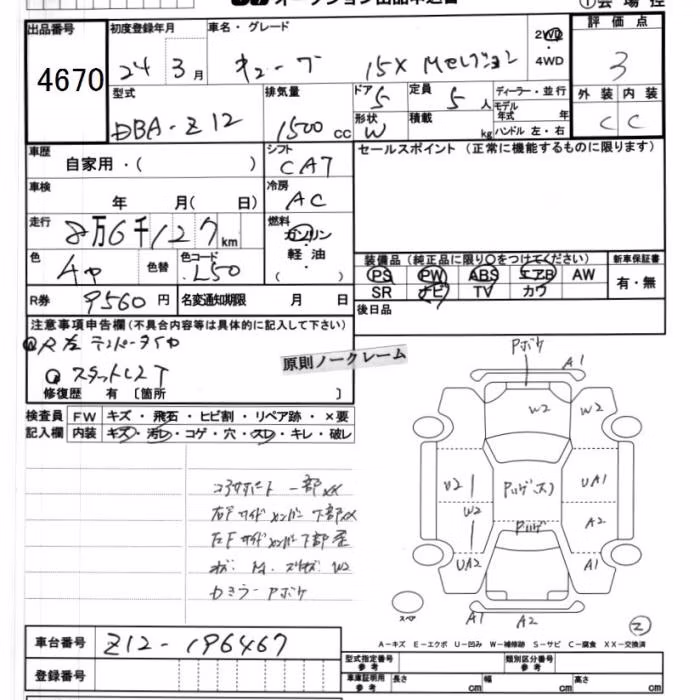 オークション出品申込書
①会場控
出品番号
4670
初度登録年月
24 3月
車名・グレード
キューブ 15X Mセレクション
2WD
4WD
評価点
3
型式
DBA-Z12
排気量
1500 cc
ドア
5
形状
W
定員
5人
積載
kg
ディーラー・並行
モデル年式 年
ハンドル 左・右
外装 内装
C C
車歴
自家用・( )
シフト
CAT
セールスポイント (正常に機能するものに限ります)
車検
年 月( 日)
冷房
AC
走行
8万6千127km
燃料
ガソリン
軽油
( )
色
色替
色コード
L50
装備品 (純正品に限り○をつけてください)
新車保証書
PS PW ABS エアB AW
SR ナビ TV カワ
有・無
R券 9560円
名変通知期限 月 日
後日品
注意事項申告欄(不具合内容等は具体的に記入して下さい)
R左テンパータイヤ
スタットレスT
修復歴 有 〔箇所 〕
原則ノークレーム
検査員記入欄
FW キズ・飛石・ヒビ割・リペア跡・×要
内装 キズ・汚レ・コゲ・穴・スレ・キレ・破レ
コアサポート 一部XX
右Fサイドメンバー下部XX
左Fサイドメンバー下部歪
カミラーPボケ
Pボケ
A1
W2
W2
U2
W2
UA2
UA1
A2
A1
A1
A2
スペア
②
A-キズ E-エクボ U-凹み W-補修跡 S-サビ C-腐食 XX-交換済
車台番号 Z12-196467
登録番号
型式指定番号 参考
類別区分番号 参考
車庫証明用 参考 長さ cm 幅 cm 高さ cm